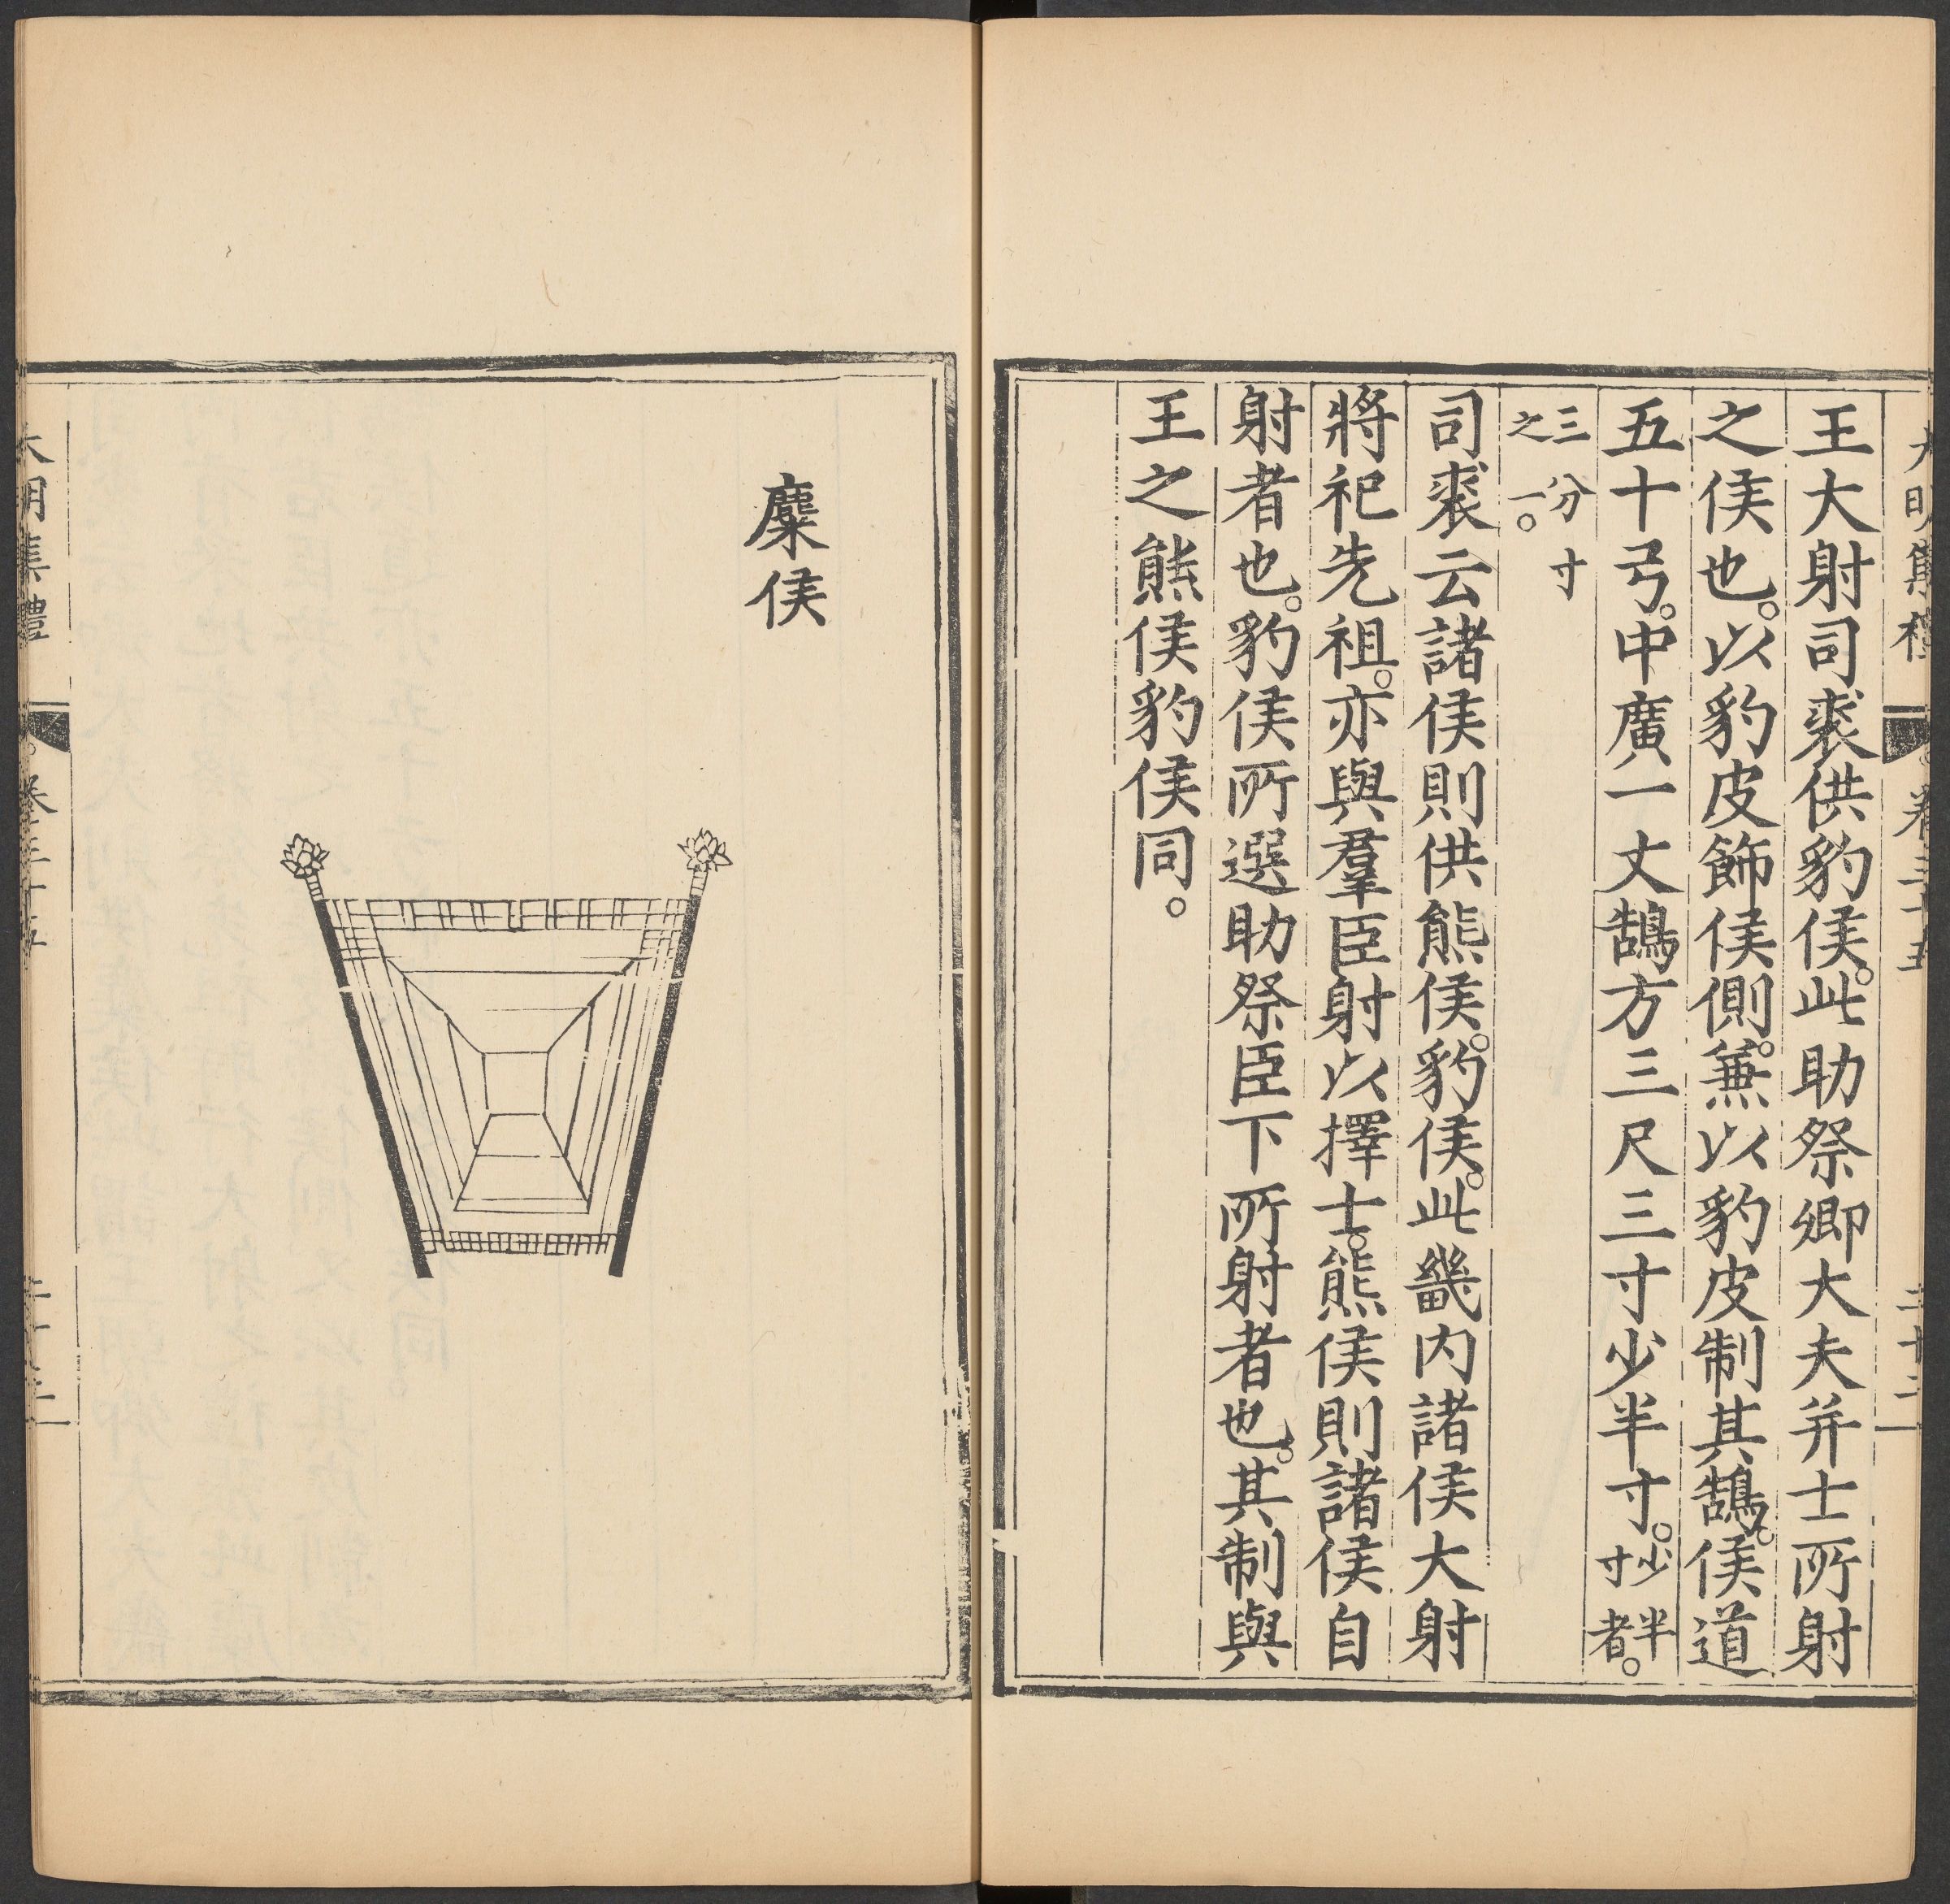 大明集禮 卷三十五 二十二
王大射司裘供豹侯。此助祭卿大夫并士所射
之侯也。以豹皮飾侯側。蒹以豹皮制其鵠。侯道
五十弓。中廣一丈鵠方三尺三寸少半寸。少半寸者。
三分寸之一。
司裘云諸侯則供熊侯。豹侯。此畿内諸侯大射
將祀先祖。亦與羣臣射以擇士。熊侯則諸侯自
射者也。豹侯所選助祭臣下所射者也。其制與
王之熊侯豹侯同。
麋侯
大明集禮 卷三十五